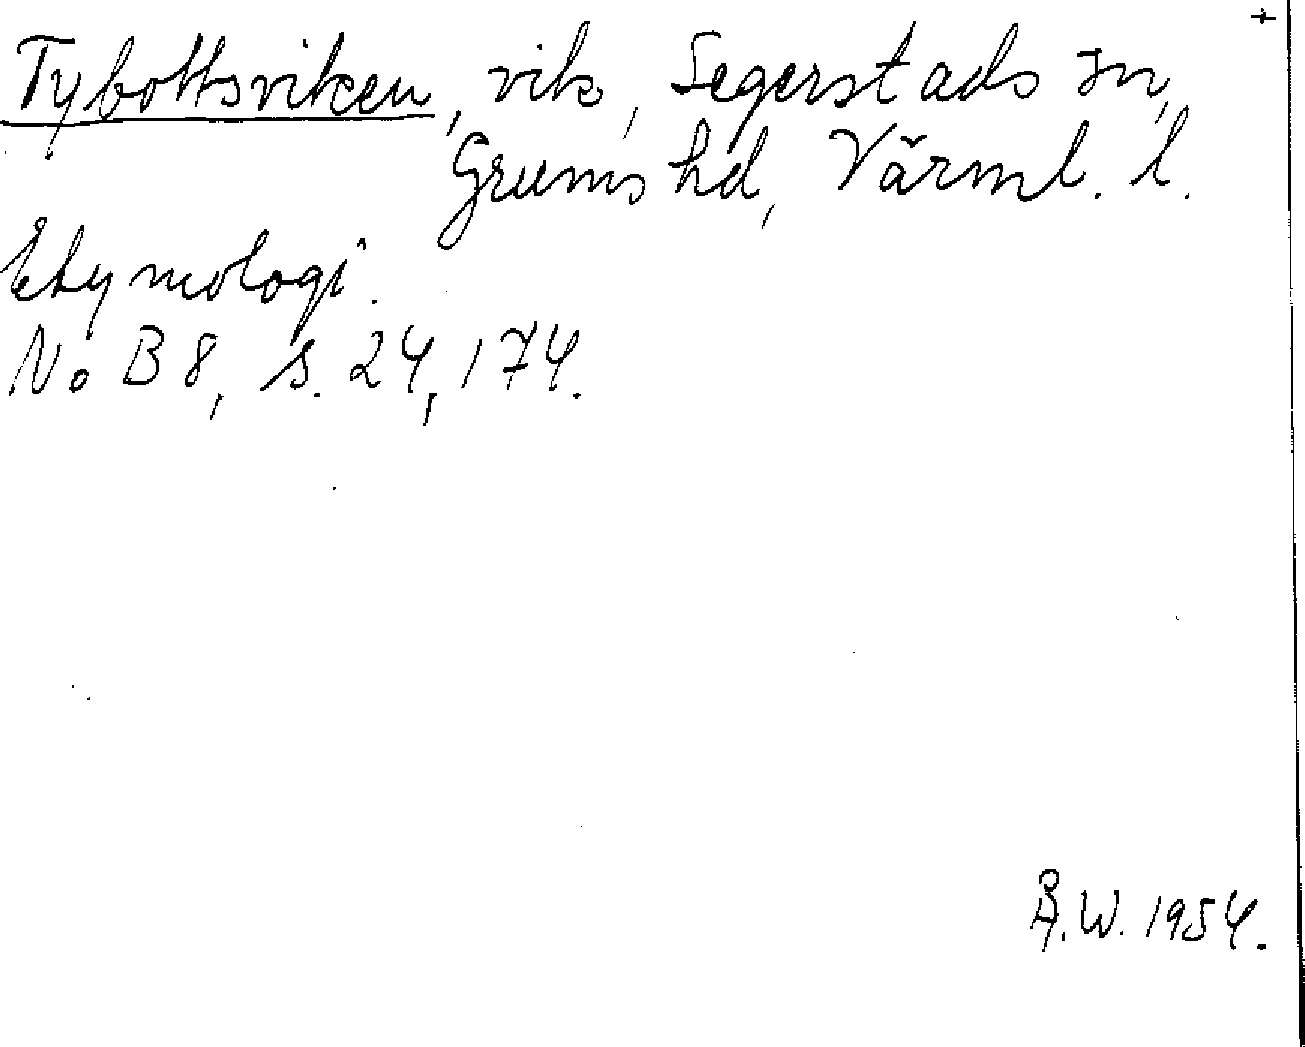 +
Tybottsviken, vik, Segerstads sn,
Grums hd, Värml. l.
Etymologi.
NoB 8, s. 24, 174.
Å.W. 1954.